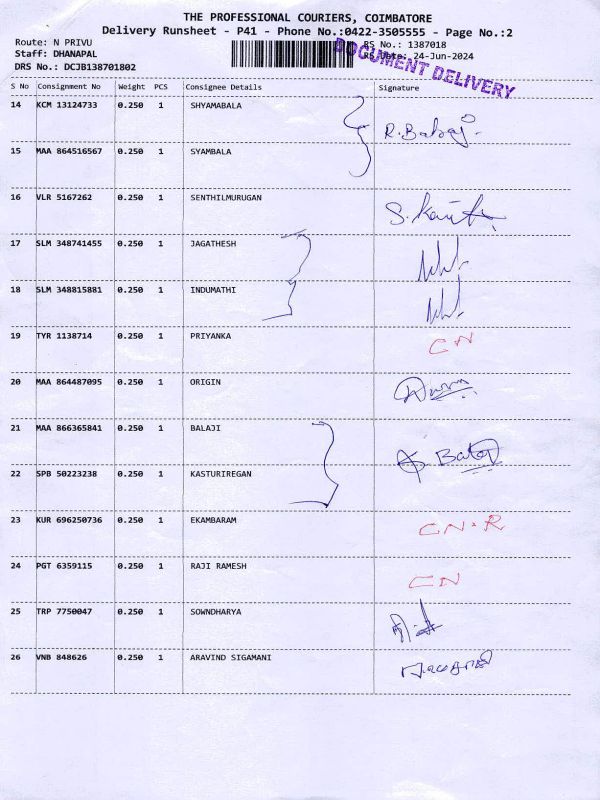 THE PROFESSIONAL COURIERS, COIMBATORE
Delivery Runsheet - P41 - Phone No.:0422-3505555 - Page No.:2
Route: N PRIVU
RS No.: 1387018
Staff: DHANAPAL
RS Date: 24-Jun-2024
DRS No.: DCJB138701802
DOCUMENT DELIVERY
S No Consignment No Weight PCS Consignee Details Signature
14 KCM 13124733 0.250 1 SHYAMABALA
R. Babaj
15 MAA 864516567 0.250 1 SYAMBALA
16 VLR 5167262 0.250 1 SENTHILMURUGAN
17 SLM 348741455 0.250 1 JAGATHESH
18 SLM 348815881 0.250 1 INDUMATHI
19 TYR 1138714 0.250 1 PRIYANKA CN
20 MAA 864487095 0.250 1 ORIGIN
21 MAA 866365841 0.250 1 BALAJI
22 SPB 50223238 0.250 1 KASTURIREGAN
23 KUR 696250736 0.250 1 EKAMBARAM CN-R
24 PGT 6359115 0.250 1 RAJI RAMESH CN
25 TRP 7750047 0.250 1 SOWNDHARYA
26 VNB 848626 0.250 1 ARAVIND SIGAMANI